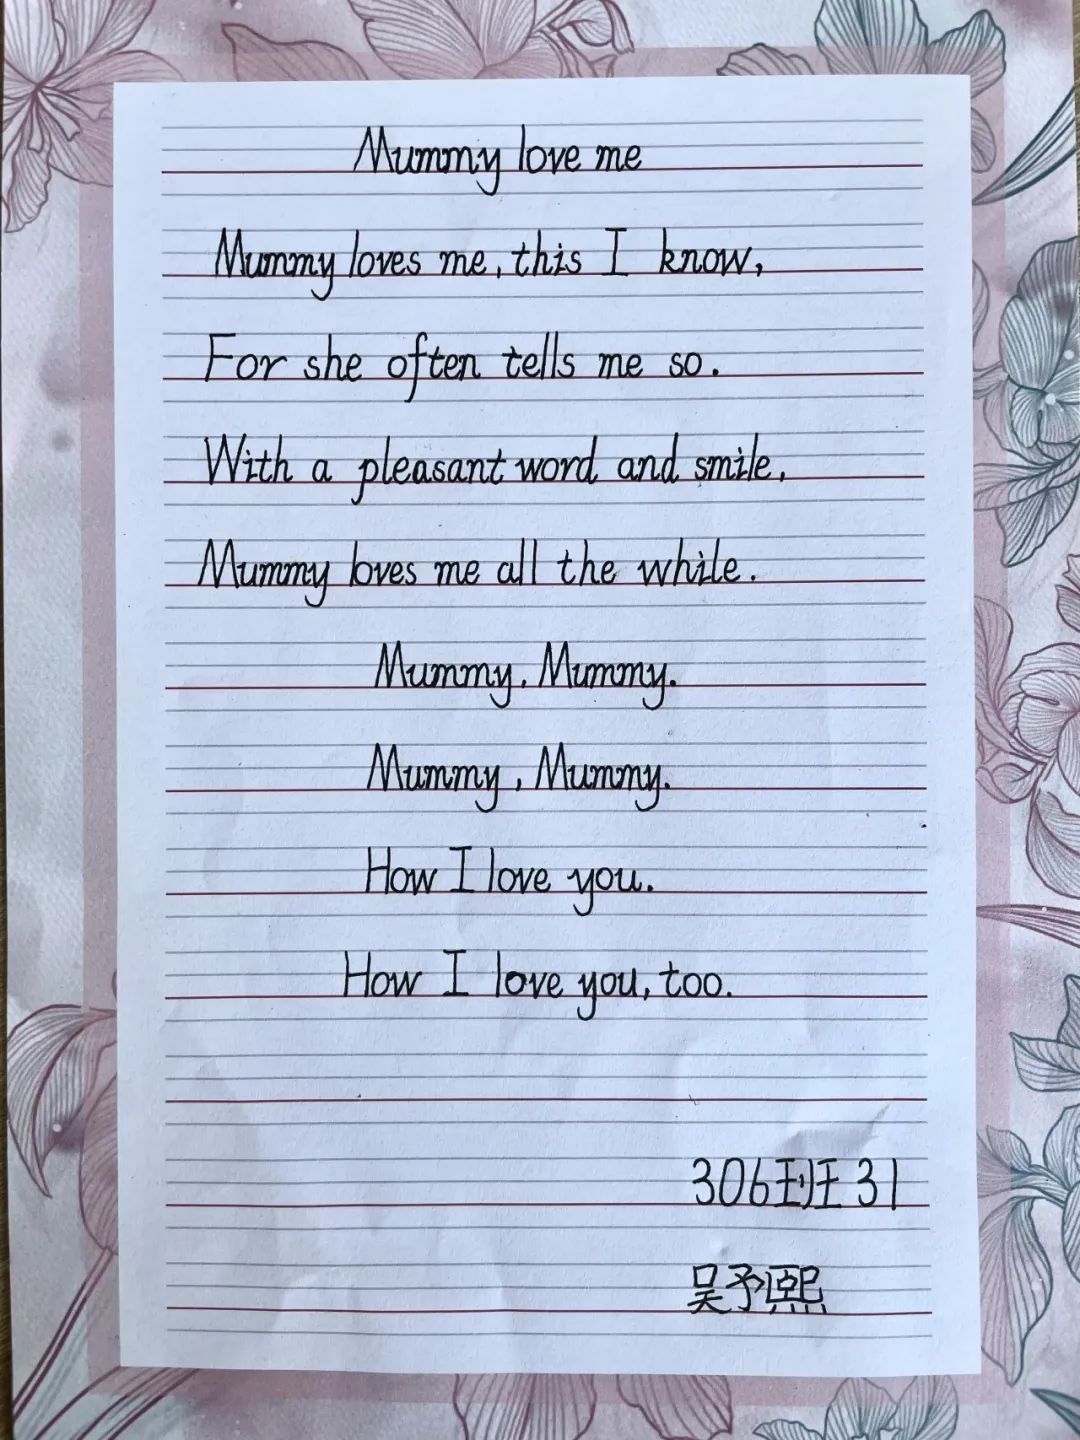 Mummy love me
Mummy loves me, this I know,
For she often tells me so.
With a pleasant word and smile,
Mummy loves me all the while.
Mummy, Mummy.
Mummy, Mummy.
How I love you.
How I love you, too.
306班31
吴予熙